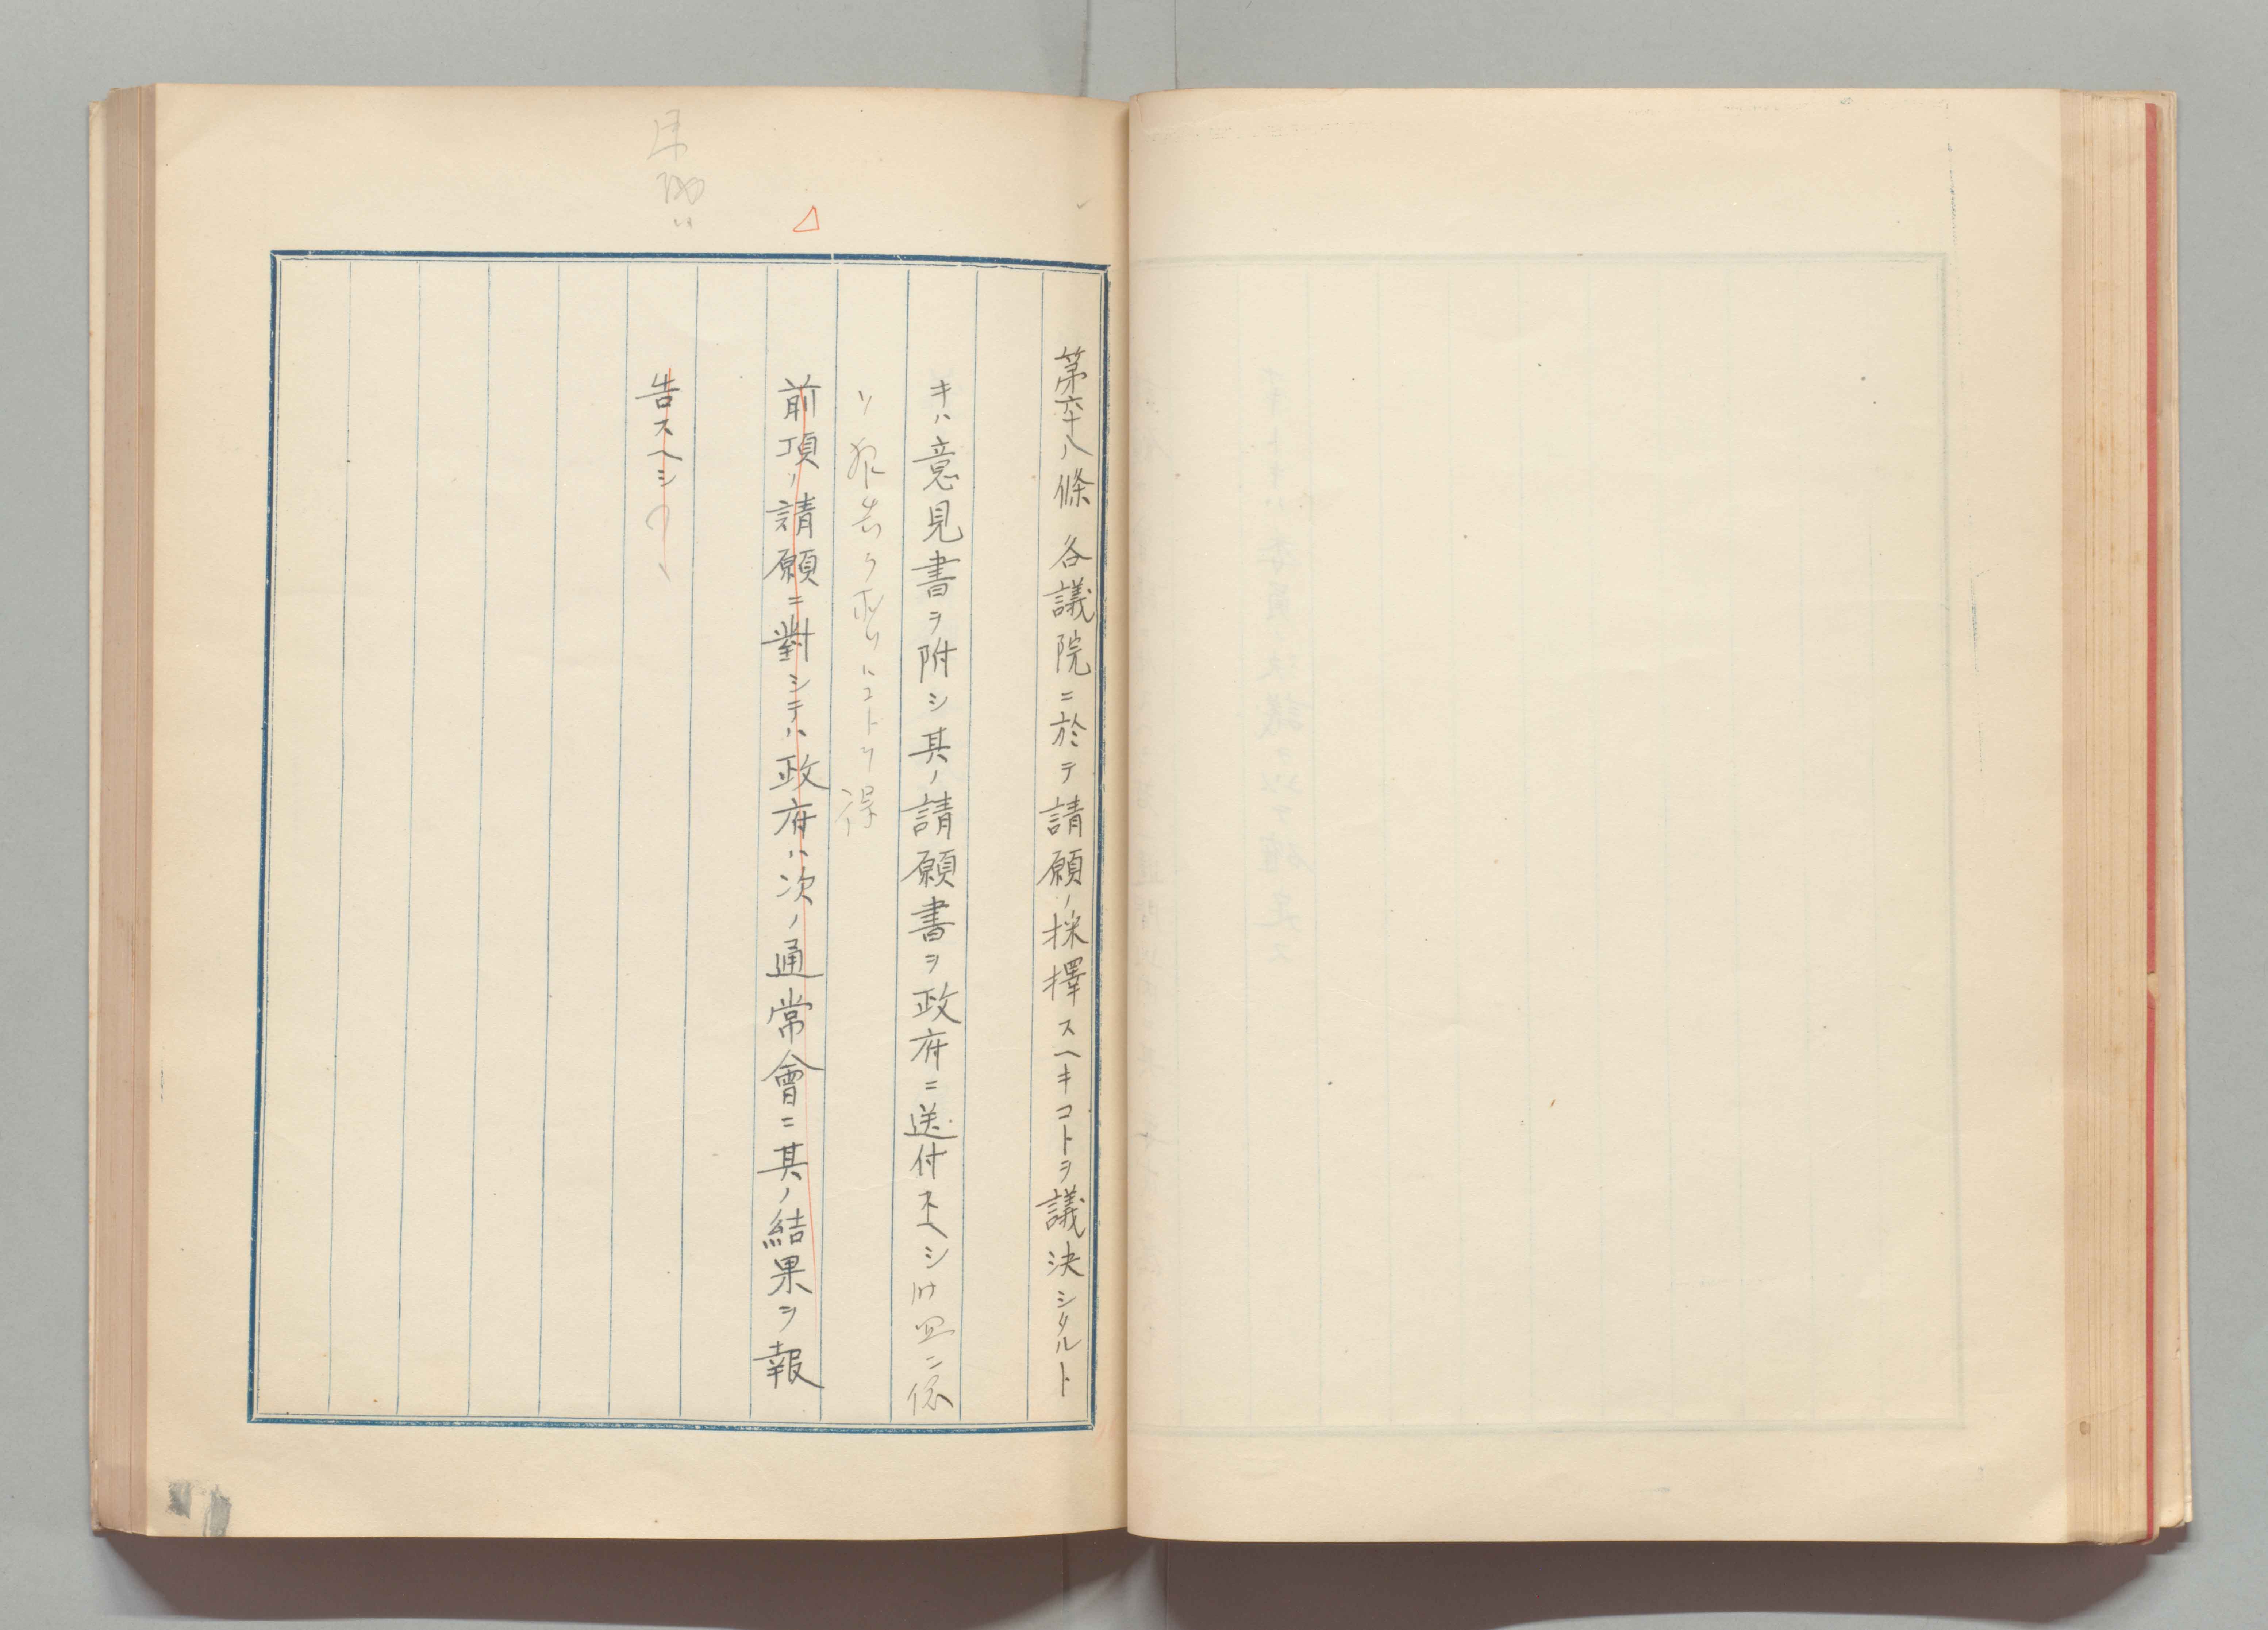 第六十八條 各議院ニ於テ請願ノ採擇スヘキコトヲ議決シタルト
キハ意見書ヲ附シ其ノ請願書ヲ政府ニ送付スヘシ時宜ニ依
リ報告ヲ求ムルコトヲ得
前項ノ請願ニ對シテハ政府ハ次ノ通常會ニ其ノ結果ヲ報
告スヘシ